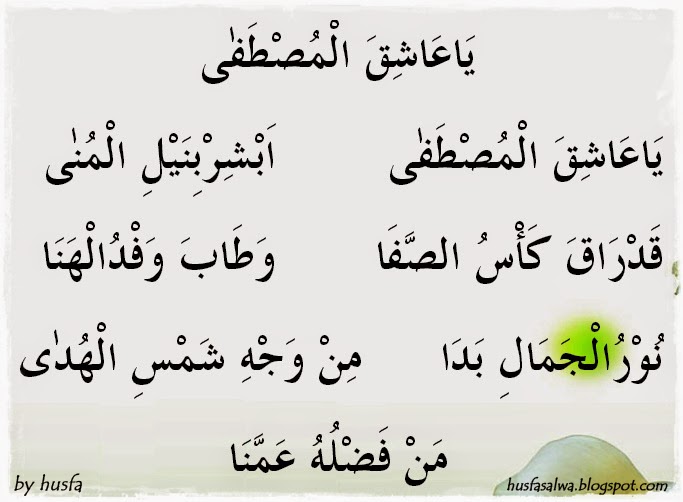 يَاعَاشِقَ الْمُصْطَفٰى
يَاعَاشِقَ الْمُصْطَفٰى اَبْشِرْبِنَيْلِ الْمُنٰى
قَدْرَاقَ كَأْسُ الصَّفَا وَطَابَ وَفْدُالْهَنَا
نُوْرُالْجَمَالِ بَدَا مِنْ وَجْهِ شَمْسِ الْهُدٰى
مَنْ فَضْلُهُ عَمَّنَا
by husfa husfasalwa.blogspot.com